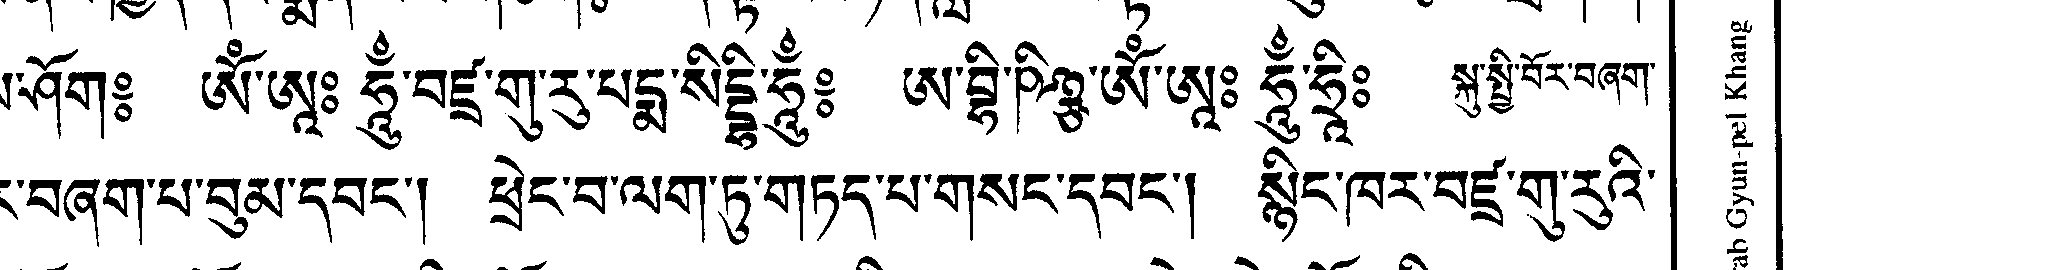 ཤོག༔ ཨོཾ་ཨཱཿ ཧཱུྃ་བཛྲ་གུ་རུ་པདྨ་སིདྡྷི་ཧཱུྃ༔ ཨ་བྷི་ཥིཉྩ་ཨོཾ་ཨཱཿ ཧཱུྃ་ཧྲཱིཿ སྐུ་སྤྱི་བོར་བཞག་
བཞག་པ་བུམ་དབང་། ཕྲེང་བ་ལག་ཏུ་གཏད་པ་གསང་དབང་། སྙིང་ཁར་བཛྲ་གུ་རུའི་
Gyun-pel Khang